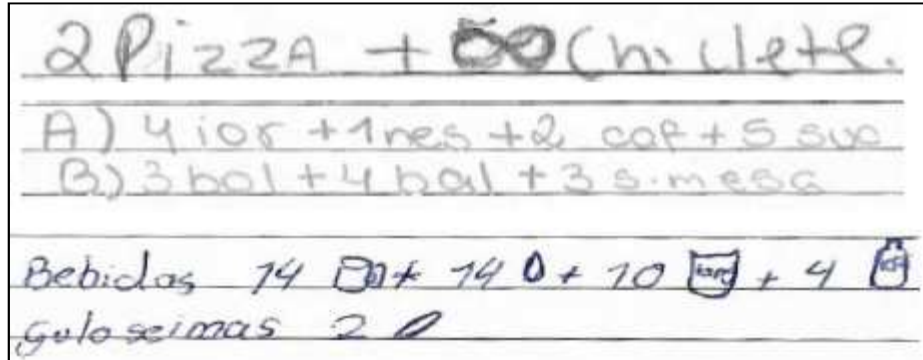 2 PizzA + ∞ Chiclete.
A) 4 ior + 1 nes + 2 caf + 5 suc
B) 3 bol + 4 bal + 3 s.mesa
Bebidas 14 + 14 + 10 tang + 4
guloseimas 2